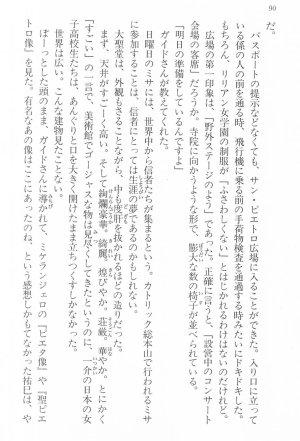 90
だ。
パスポートの提示などなくても、サン・ピエトロ広場に入ることができた。入り口に立って
いる係の人の前を通る時、飛行機に乗る前の手荷物検査を通過する時みたいにドキドキした。
もちろん、リリアン女学園の制服が「ふさわしくない」とはじかれるわけはないのだけれど。
広場の第一印象は、「野外ステージのよう」であった。正確に言うと、「設営中のコンサート
会場の客席」だろうか。寺院に向かうような形で、膨大な数の椅子が並べられている。
「明日の準備をしているんですよ」
ガイドさんが教えてくれた。
日曜日のミサには、世界中から信者たちが集まるという。カトリック総本山で行われるミサ
に参加することは、信者にとっては生涯の夢であるのかもしれない。
大聖堂は、外観もさることながら、中も度肝を抜かれるほどの造りだった。
まず、天井がすごーく高い。そして絢爛豪華。綺麗。煌びやか。荘厳。華やか。とにかく
「すごい」の一言で、美術館でゴージャスな物は見尽くしてきたというのに、一介の日本の女
子高校生たちは、あんぐりと口を大きく開けたまま立ちつくすしかなかった。
世界は広い。こんな建物見たことない。
ぼーっとした頭のままガイドさんに導かれて、ミケランジェロの『ピエタ像』や『聖ピエ
トロ像』を見た。有名なあの像はここにあったのね、という感想しかもてなかった祐巳は、や